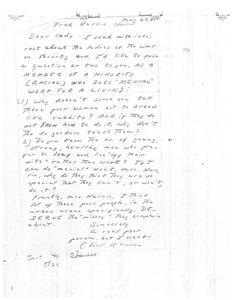 Fred Harris
May 22
Dear Lady: I read with inte-
rest about the Ladies of the War
on Poverty and I'd like to pose
a question or two to you, AS A
MEMBER OF A MINORITY
(RACIAL) WHO DOES "MENIAL"
WORK FOR A LIVING:
(1) Why doesn't some one tell
these poor women not to breed
like rabbits? And if they do
not know how to do it, why don't
the do gooders teach them?
2) Do you know the no. of young,
strong, healthy men who pre-
fer to loaf and live off their
wives rather than work? If I
can do "menial" work, Mrs. Har-
ris, why do they think they are so
special that they can't, or won't,
do it?
Frankly, Mrs. Harris, I think
most of these poor people, in the
urban areas specifically, DE-
SERVE the "misery" they complain
about.
Sincerely,
a real poor
person, but I work,
Sent to
5/24